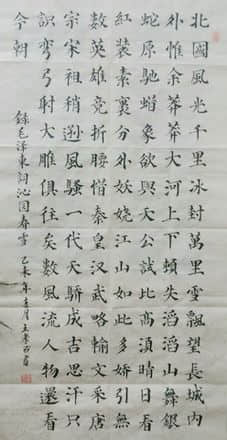 北國風光千里冰封萬里雪飄望長城内
外惟余莽莽大河上下頓失滔滔山舞銀
蛇原馳蜡象欲與天公試比高須晴日看
紅裝素裹分外妖嬈江山如此多嬌引無
數英雄竞折腰惜秦皇汉武略輸文采唐
宗宋祖稍遜風騷一代天驕成吉思汗只
識彎弓射大雕俱往矣數風流人物還看
今朝 錄毛泽東詞沁园春雪 乙未年月書